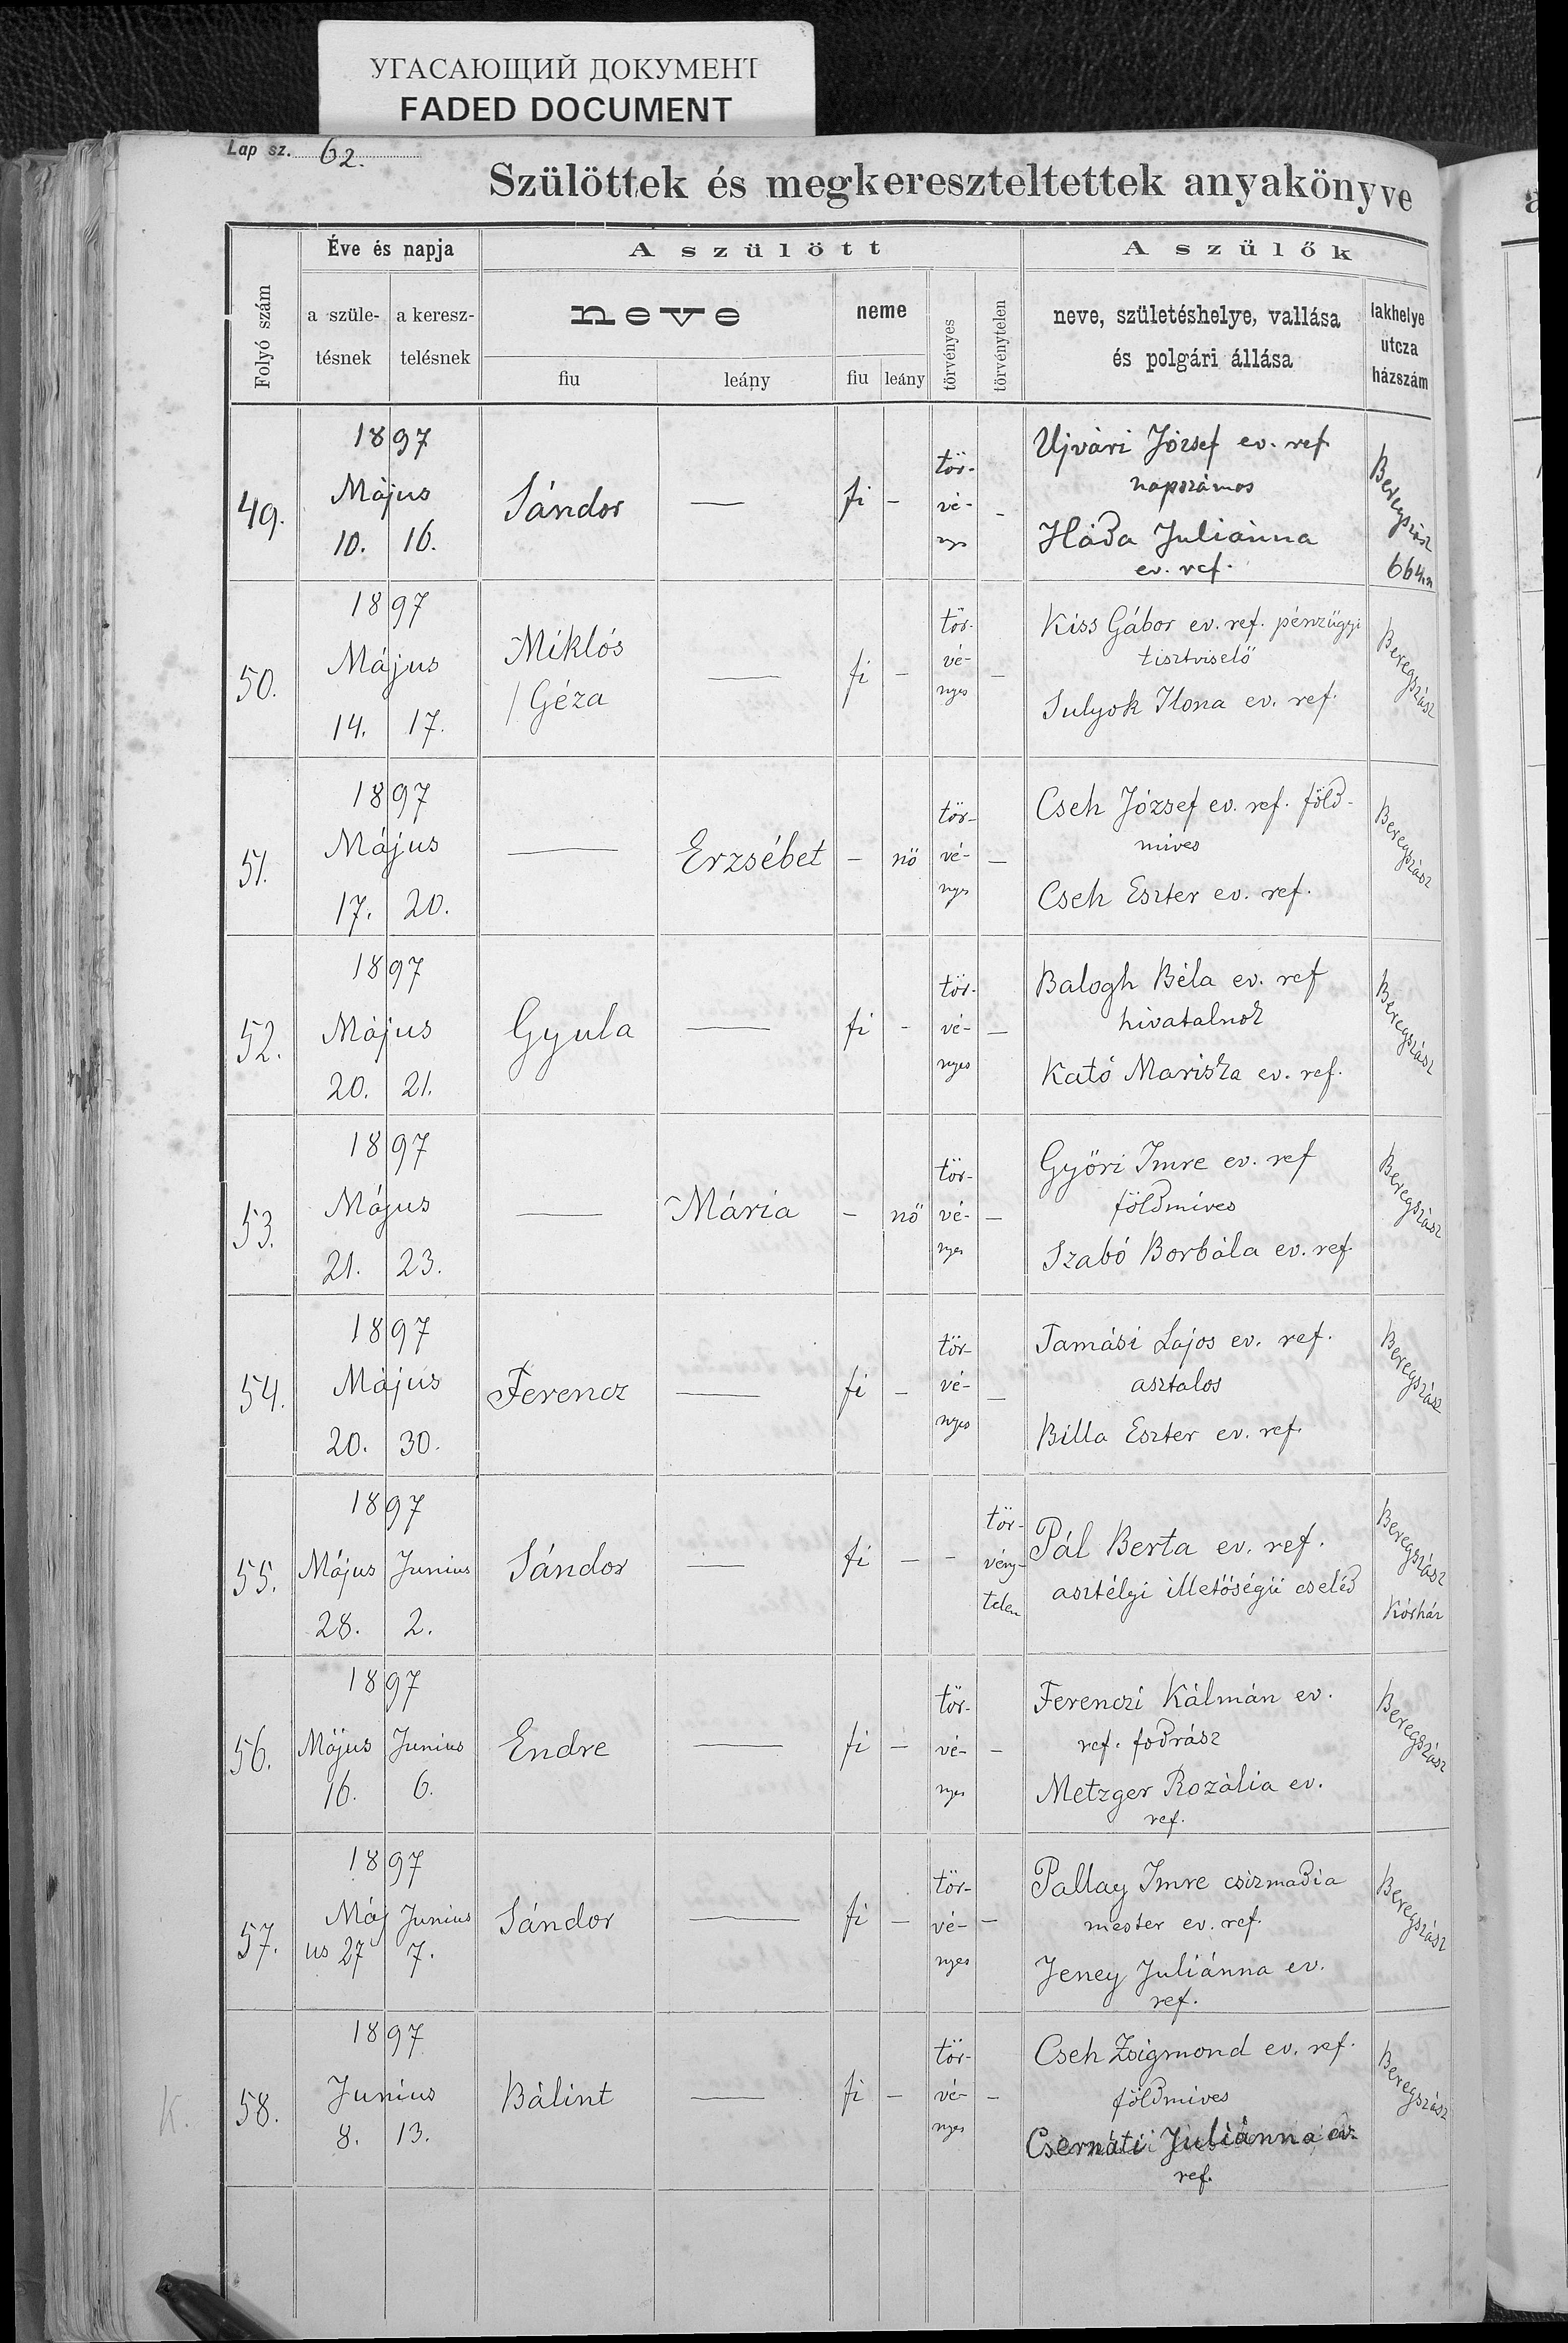 УГАСАЮЩИЙ ДОКУМЕНТ
FADED DOCUMENT
Lap sz. 62.
Szülöttek és megkereszteltettek anyakönyve
Folyó szám
Éve és napja
a születésnek
a keresztelésnek
A szülött
neve
fiu
leány
neme
fiu
leány
törvényes
törvénytelen
A szülők
neve, születéshelye, vallása
és polgári állása
lakhelye
utcza
házszám
49.
1897
Május
10. 16.
Sándor — fi -
tör-
vé-
nyes
-
Ujvári József ev. ref
napszámos
Háda Juliánna
ev. ref.
Beregszász
664
50.
1897
Május
14. 17.
Miklós
/ Géza
— fi -
tör-
vé-
nyes
—
Kiss Gábor ev. ref. pénzügyi
tisztviselő
Sulyok Ilona ev. ref.
Beregszász
51.
1897
Május
17. 20.
— Erzsébet - nö
tör-
vé-
nyes
—
Cseh József ev. ref. föld-
mives
Cseh Eszter ev. ref.
Beregszász
52.
1897
Május
20. 21.
Gyula — fi -
tör-
vé-
nyes
—
Balogh Béla ev. ref
hivatalnok
Kató Mariska ev. ref.
Beregszász
53.
1897
Május
21. 23.
— Mária - nö
tör-
vé-
nyes
—
Györi Imre ev. ref
földmives
Szabó Borbála ev. ref
Beregszász
54.
1897
Május
20. 30.
Ferencz — fi -
tör-
vé-
nyes
—
Tamási Lajos ev. ref.
asztalos
Billa Eszter ev. ref.
Beregszász
55.
1897
Május Junius
28. 2.
Sándor — fi - -
tör-
vény-
telen
Pál Berta ev. ref.
asztélyi illetöségü cseléd
Beregszász
Kórház
56.
1897
Május Junius
16. 6.
Endre — fi -
tör-
vé-
nyes
—
Ferenczi Kálmán ev.
ref. fodrász
Metzger Rozália ev.
ref.
Beregszász
57.
1897
Máj Junius
us 27 7.
Sándor — fi -
tör-
vé-
nyes
—
Pallay Imre csizmadia
mester ev. ref.
Jeney Juliánna ev.
ref.
Beregszász
K.
58.
1897
Junius
8. 13.
Bálint — fi -
tör-
vé-
nyes
—
Cseh Zsigmond ev. ref.
földmives
Csernáti Juliánna ev.
ref.
Beregszász